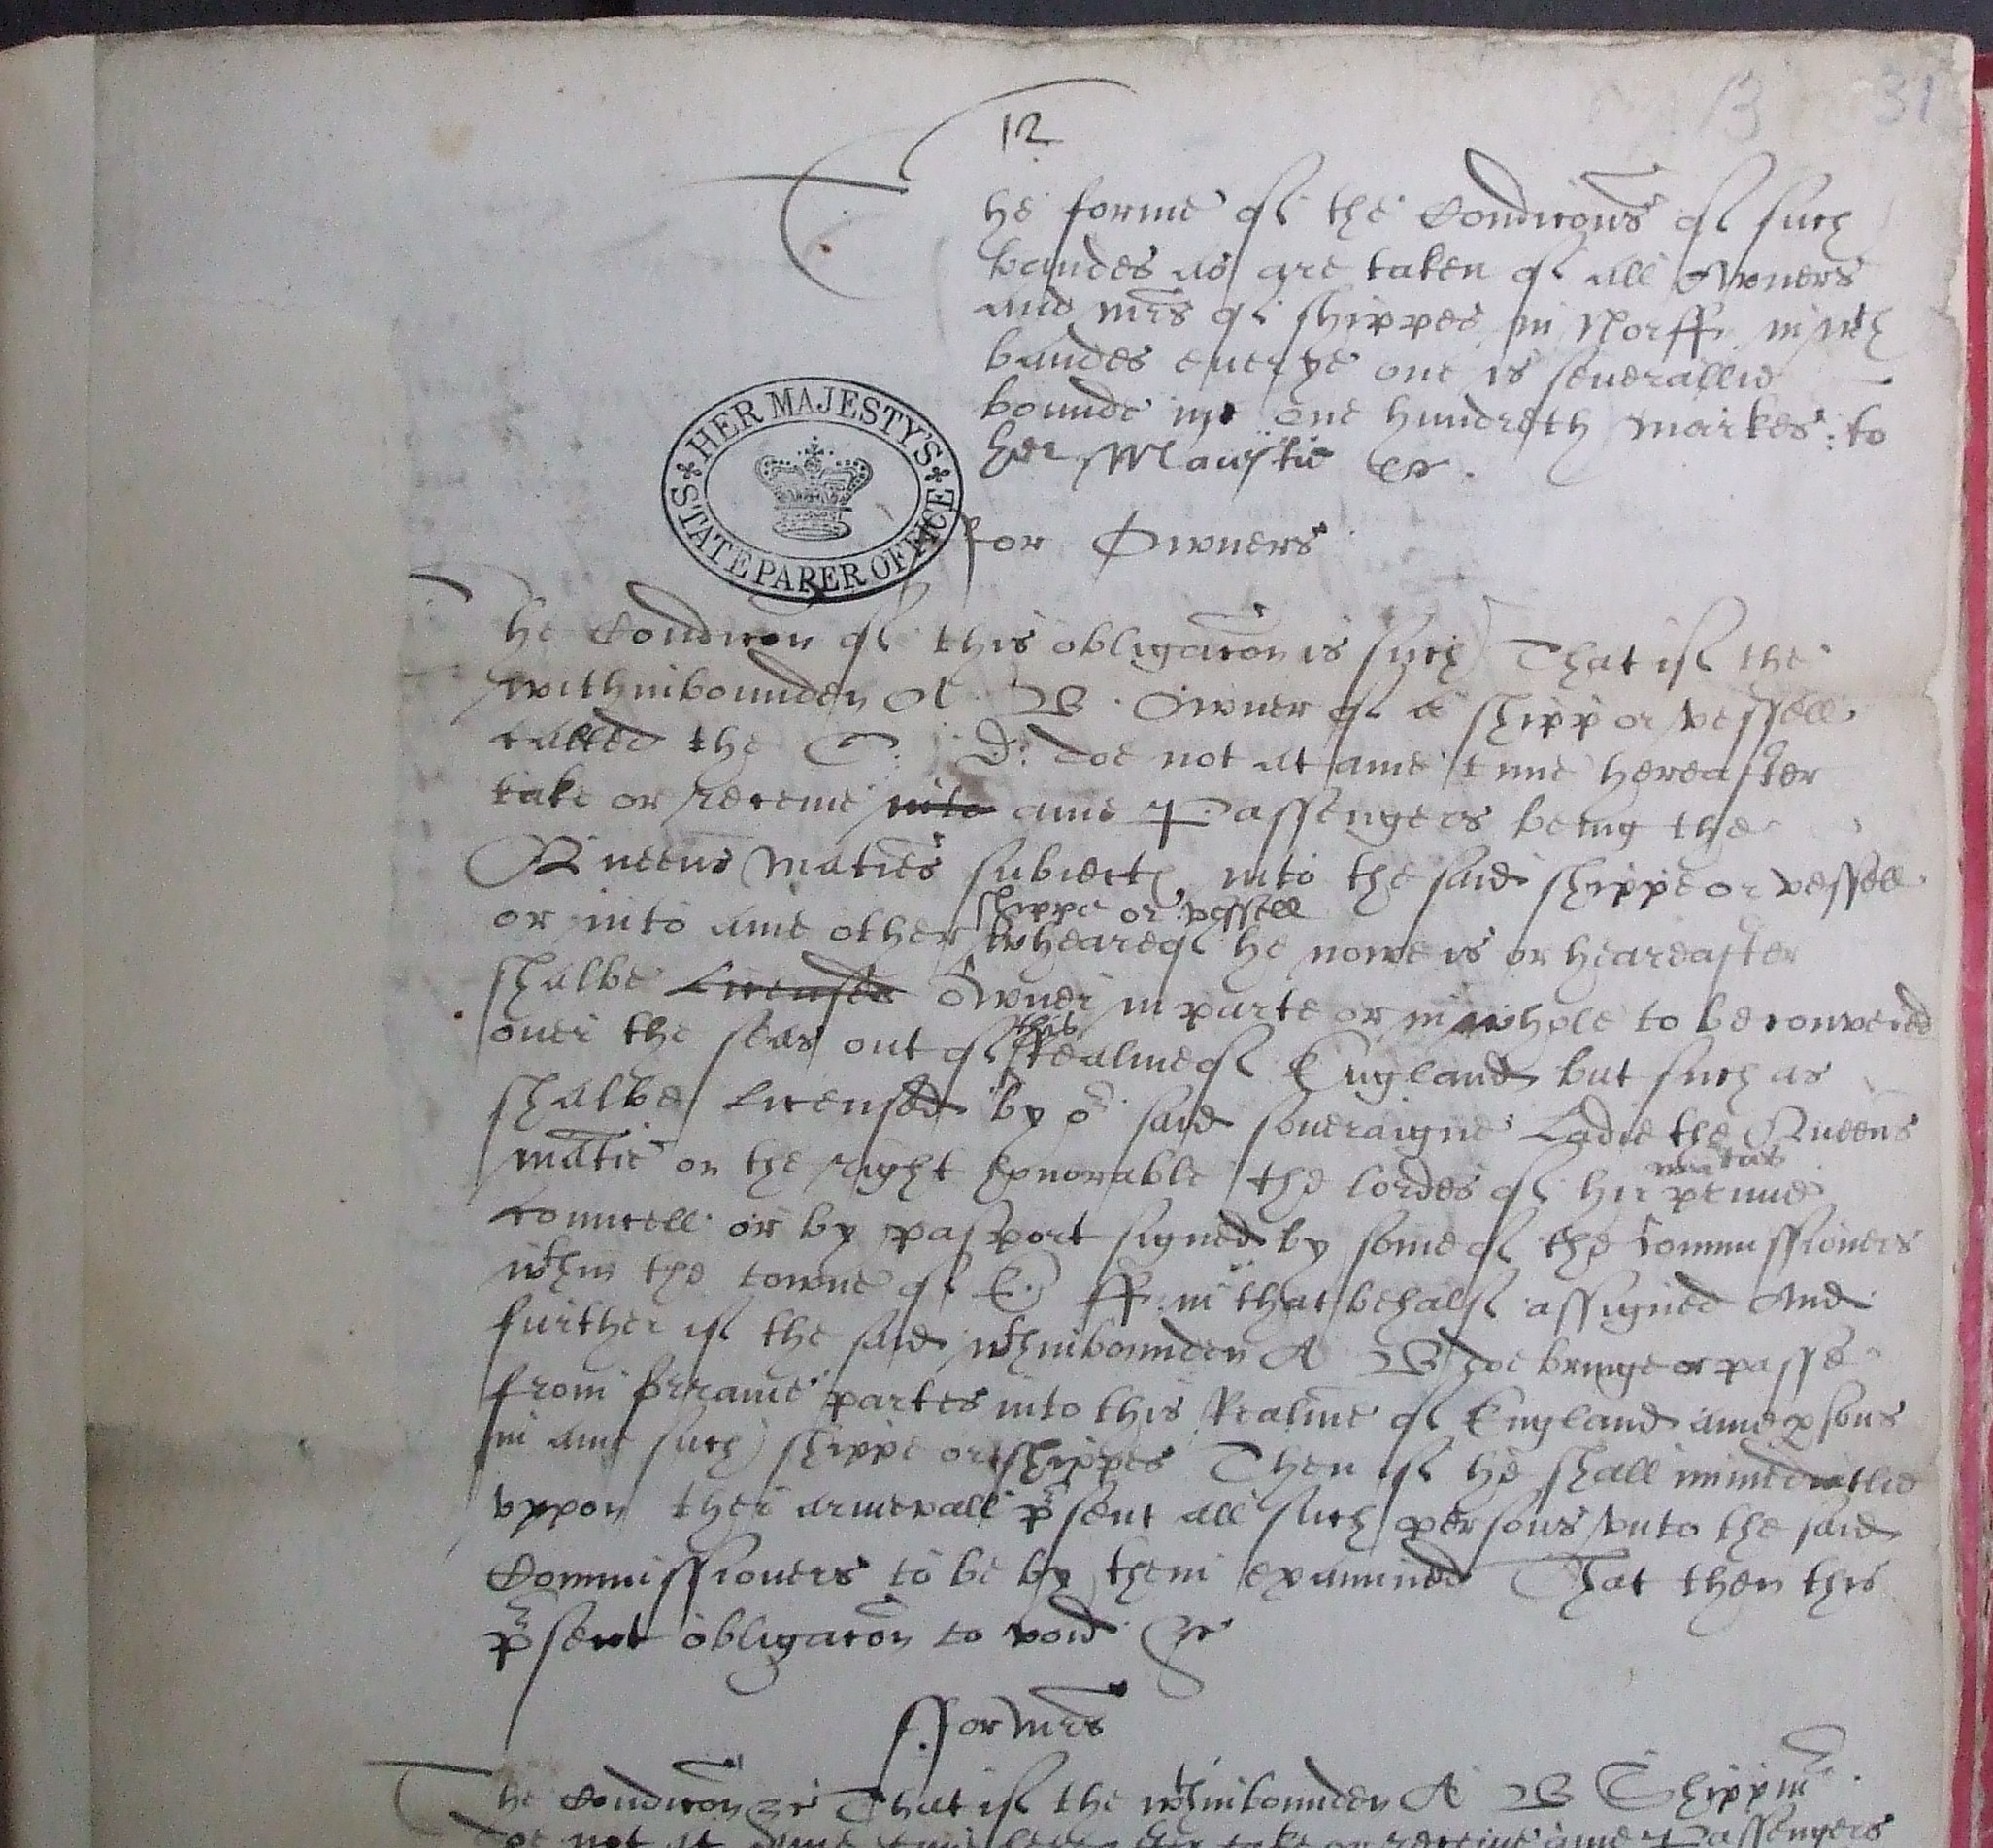 12
13 31
The forme of the Condicons of such
bandes as are taken of all Owners
and mrs of shippes in Norff. in wch
bandes euerye one is seuerallie
bounde in one hundreth markes: to
her Maiestie &c.
HER MAJESTY'S STATE PAPER OFFICE
for Owners
The Condicon of this obligacon is such That if the
withinbounden A. B. Owner of a shipp or vessell
called the C. D: doe not at anie time hereafter
take or receiue into anie Passengers being the
Queens Maties subiects into the said shippe or vessell
shippe or vessell
or into anie other wheareof he nowe is or heareafter
shalbe Licensed Owner in parte or in whole to be conveied
this
ouer the seas out of Realme of England but such as
shalbe Licensed by or said soueraigne Ladie the Queens
maties
matie or the right honorable the lordes of hir priuie
councell or by pasport signed by some of the Commissioners
wthin the towne of E. ff. in that behalf assigned And
further if the said wthinbounden A B doe bringe or passe
from forraine partes into this Realme of England anie psons
in anie such shippe or shippes Then if he shall immediatlie
vppon their arrivall psent all such persons vnto the said
Commissioners to be by them examined That then this
psent obligacon to void &c
ffor Mrs
The Condicon &c That if the wthinbounden A B Shipp mr
doe not at anie time take or receiue anie Passengers